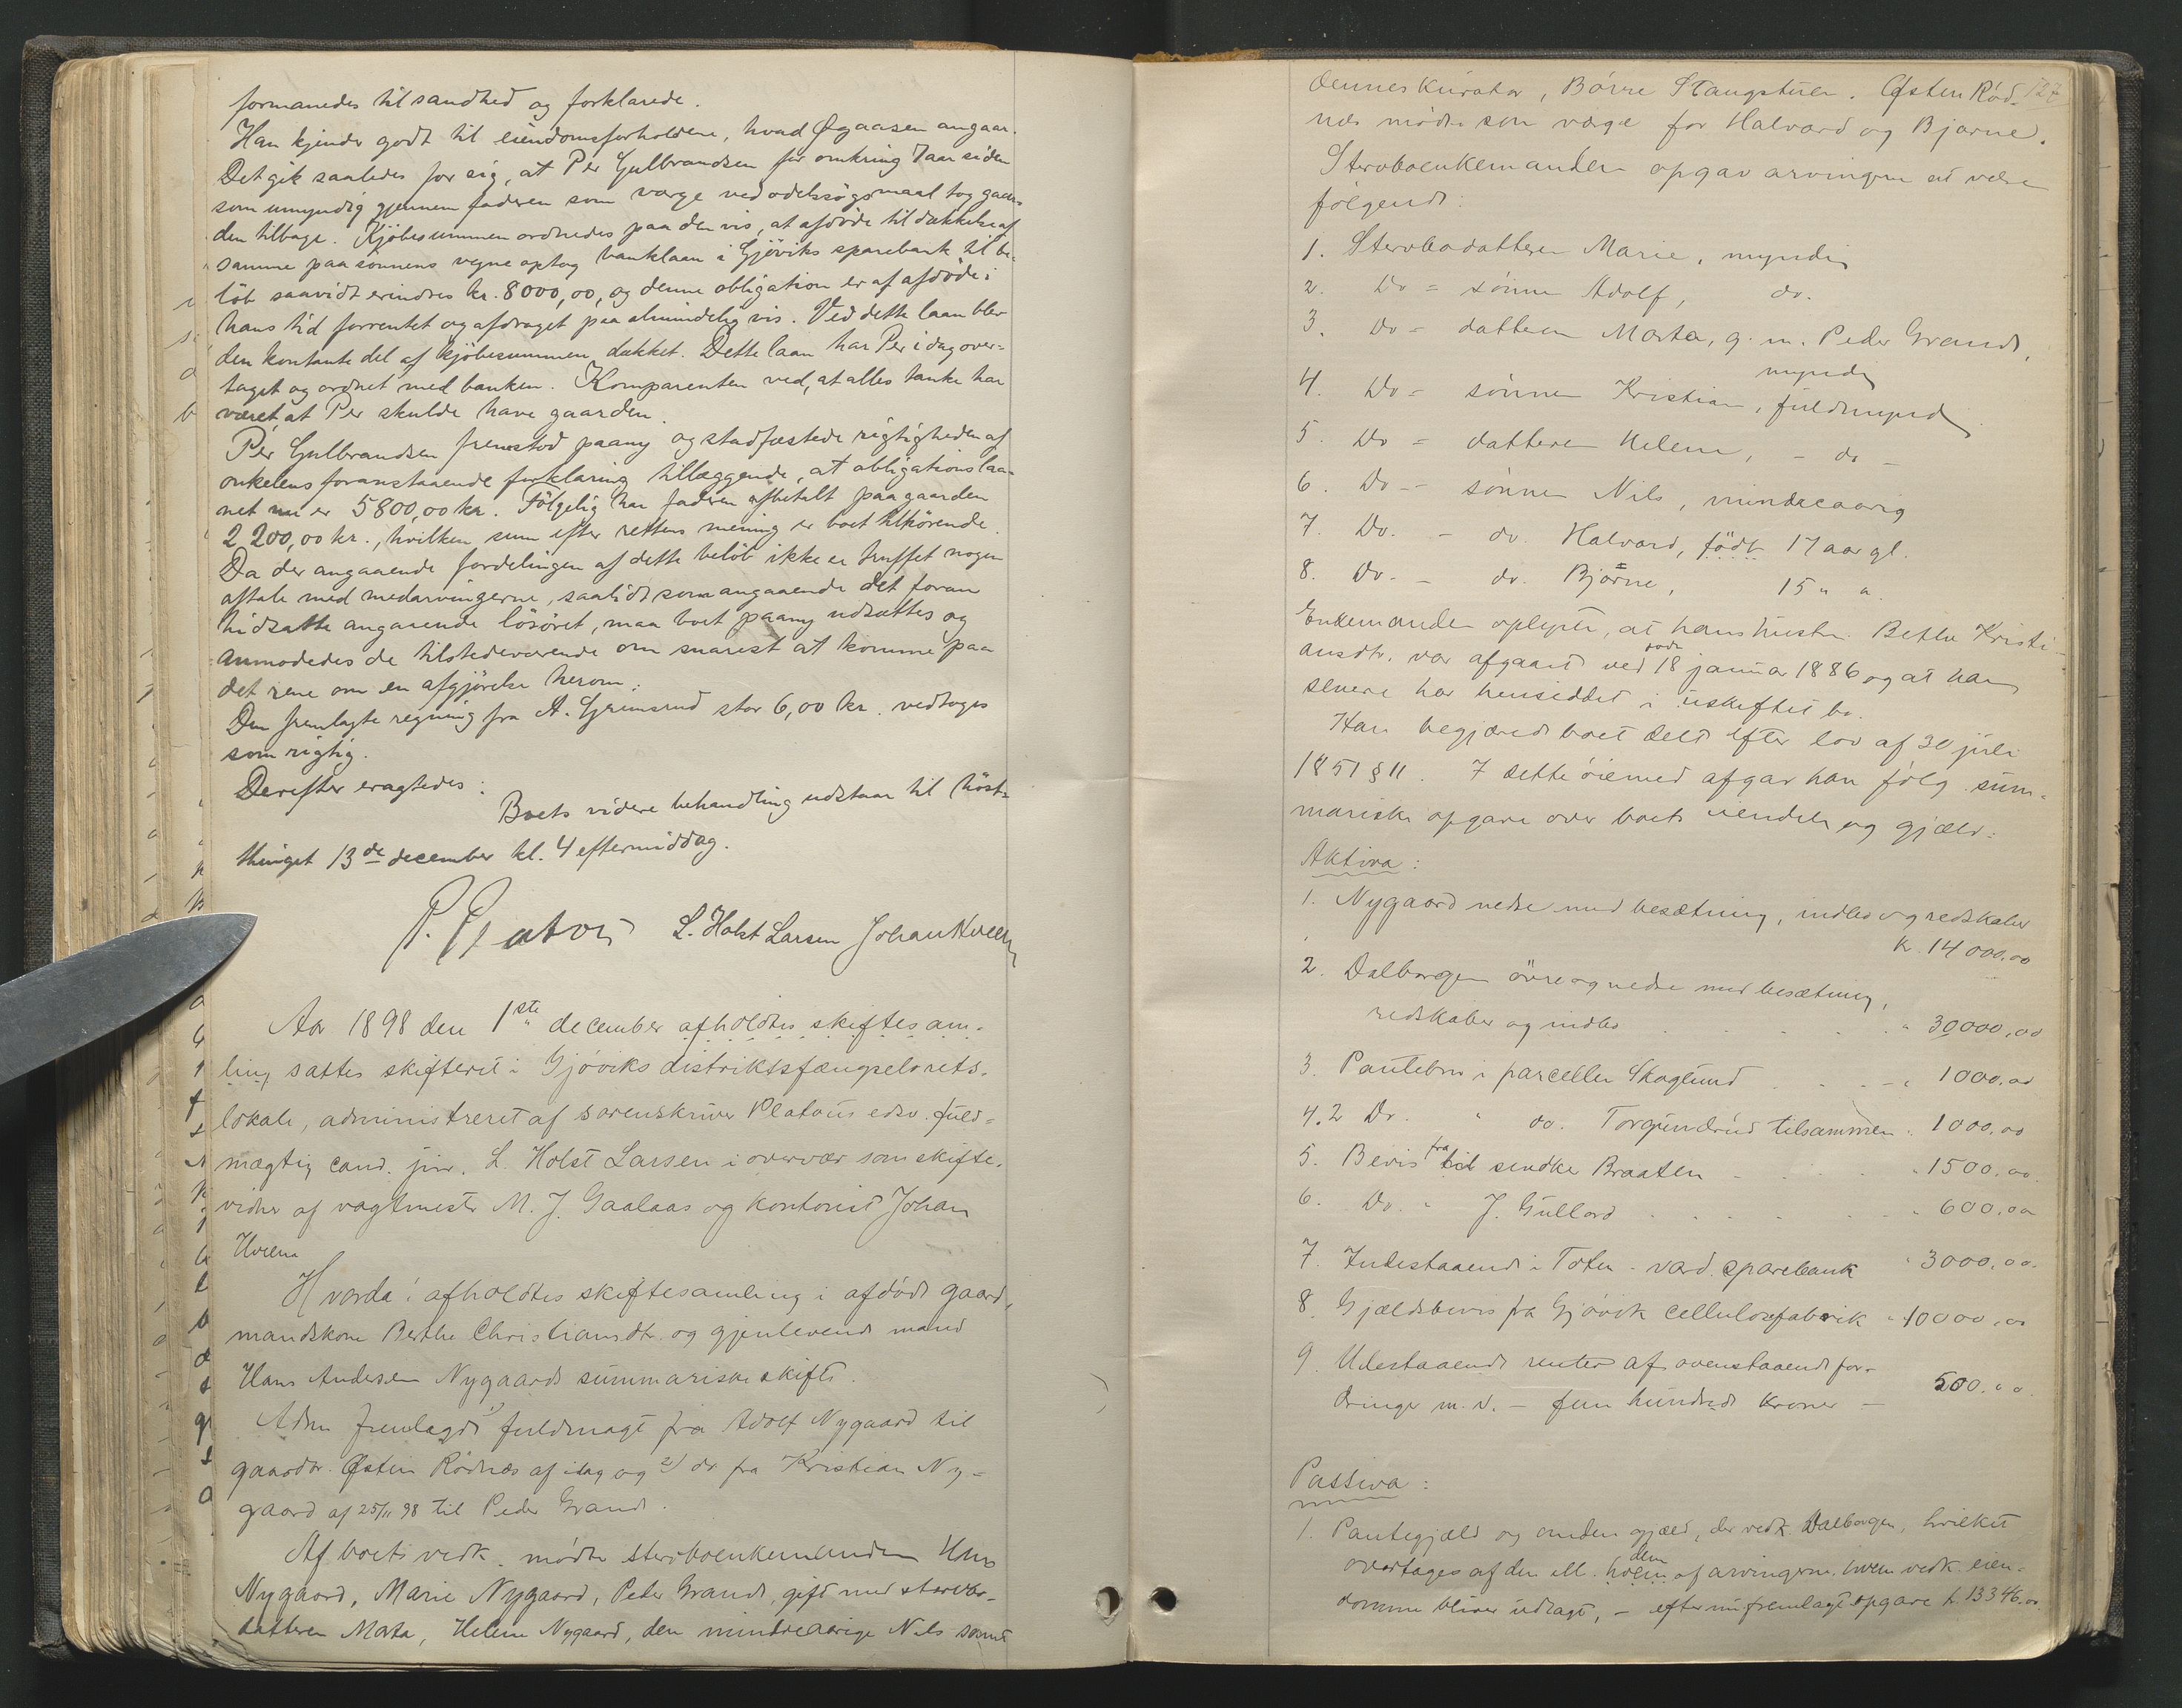 formanedes til sandhed og forklarede.
Han kjender godt til eiendomsforholdene, hvad Øgaasen angaar.
Det gik saaledes for sig, at Per Gulbrandsen for omkring 7 aar siden
som umyndig gjennem faderen som værge ved odelssøgsmaal tog gaar-
den tilbage. Kjøbesummen ordnedes paa den vis, at afdøde til dækkelse af
samme paa sønnens vegne optog banklaan i Gjøviks sparebank til be-
løb saavidt erindres kr. 8000,00, og denne obligation er af afdøde i
hans tid forrentet og afdraget paa almindelig vis. Ved dette laan blev
den kontante del af kjøbesummen dækket. Dette laan har Per i dag over-
taget og ordnet med banken. Komparenten ved, at alles tanke har
været, at Per skulde have gaarden.
Per Gulbrandsen fremstod paany og stadfæstede rigtigheden af
onkelens foranstaaende forklaring tillæggende, at obligationslaa-
net nu er 5800,00 kr. Følgelig har faderen afbetalt paa gaarden
2200,00 kr., hvilken sum efter rettens mening er boet tilhørende.
Da der angaaende fordelingen af dette beløb ikke er truffet nogen
aftale med medarvingerne, saalidt som angaaende det foran
hidsatte angaaende løsøret, maa boet paany udsættes og
anmodedes de tilstedeværende om snarest at komme paa
det rene om en afgjørelse herom.
Den fremlagte regning fra A. Grimsrud stor 6,00 kr. vedtoges
som rigtig.
Derefter eragtedes:
Boets videre behandling udstaar til høst-
thinget 13de december kl. 4 eftermiddag.
P. Platou L. Holst Larsen Johan Hveem
Aar 1898 den 1ste december afholdtes skiftesam-
ling sattes skifteret i Gjøviks distriktsfængselsrets-
lokale, administreret af sorenskriver Platous edsv. fuld-
mægtig cand. jur. L. Holst Larsen i overvær som skifte-
vidner af vagtmester M. J. Gaalaas og kontorist Johan
Hveem
Hvorda: afholdtes skiftesamling i afdøde gaard-
mandskone Berthe Christiansdtr. og gjenlevende mand
Hans Andersen Nygaards summariske skifte.
Adm fremlagde 1) fuldmagt fra Adolf Nygaard til
gaardbr. Østen Rødnæs af idag og 2) do fra Kristian Ny-
gaard af 25/11 98 til Peder Grande.
Af boets vedk. mødte stervboenkemanden Hans
Nygaard, Marie Nygaard, Peder Grande, gift med stervbo-
datteren Marta, Helene Nygaard, den mindreaarige Nils samt
dennes kurator, Børre Stangstuen. Østen Rød- 127
næs mødte som værge for Halvard og Bjarne.
Stervboenkemanden opgav arvingerne at være
følgende:
1. Stervbodatteren Marie, myndig
2. Do = sønnen Adolf, do.
3. Do - datteren Marta, g. m. Peder Grande,
myndig
4. Do = sønnen Kristian, fuldmynd
5. Do = datteren Helene, - do -
6. Do - sønnen Nils, mindreaarig
7. Do. - do. Halvard, født 17 aar gl.
8. Do. - do. Bjarne, 15 " "
Enkemanden oplyste, at hans hustru Berthe Kristi-
ansdtr. var afgaaet ved døde 18 januar 1886 og at han
senere har hensiddet i uskiftet bo.
Han begjærede boet delt efter lov af 30 juli
1851 § 11. I dette øiemed afgav han følg. sum-
mariske opgave over boets eiendele og gjæld:
Aktiva:
1. Nygaard nedre med besætning, indbo og redskaber
kr. 14000,00
2. Dalborgen øvre og nedre med besætning,
redskaber og indbo . . . . . " 30000,00
3. Pantebrev i parcellen Skoglund . . . - " 1000,00
4. 2 Do. " do. Torgunrud tilsammen " 1000,00
5. Bevis fra til sendke Braaten - . . . " 1500,00
6. Do. " J. Gullord . . . . . " 600,00
7. Indestaaende i Toten - Vard. sparebank " 3000,00.
8. Gjældsbevis fra Gjøvik cellulosefabrik " 10000,00
9. Udestaaende renter af ovenstaaende for-
dringer m. v. - fem hundrede kroner - 500,00.
Passiva:
1. Pantegjæld og anden gjæld, der vedk. Dalborgen, hvilket
overtages af den ell. dem af arvingerne, hvem vedk. eien-
domme bliver udlagt, - efter nu fremlagt opgave k. 13346,00.